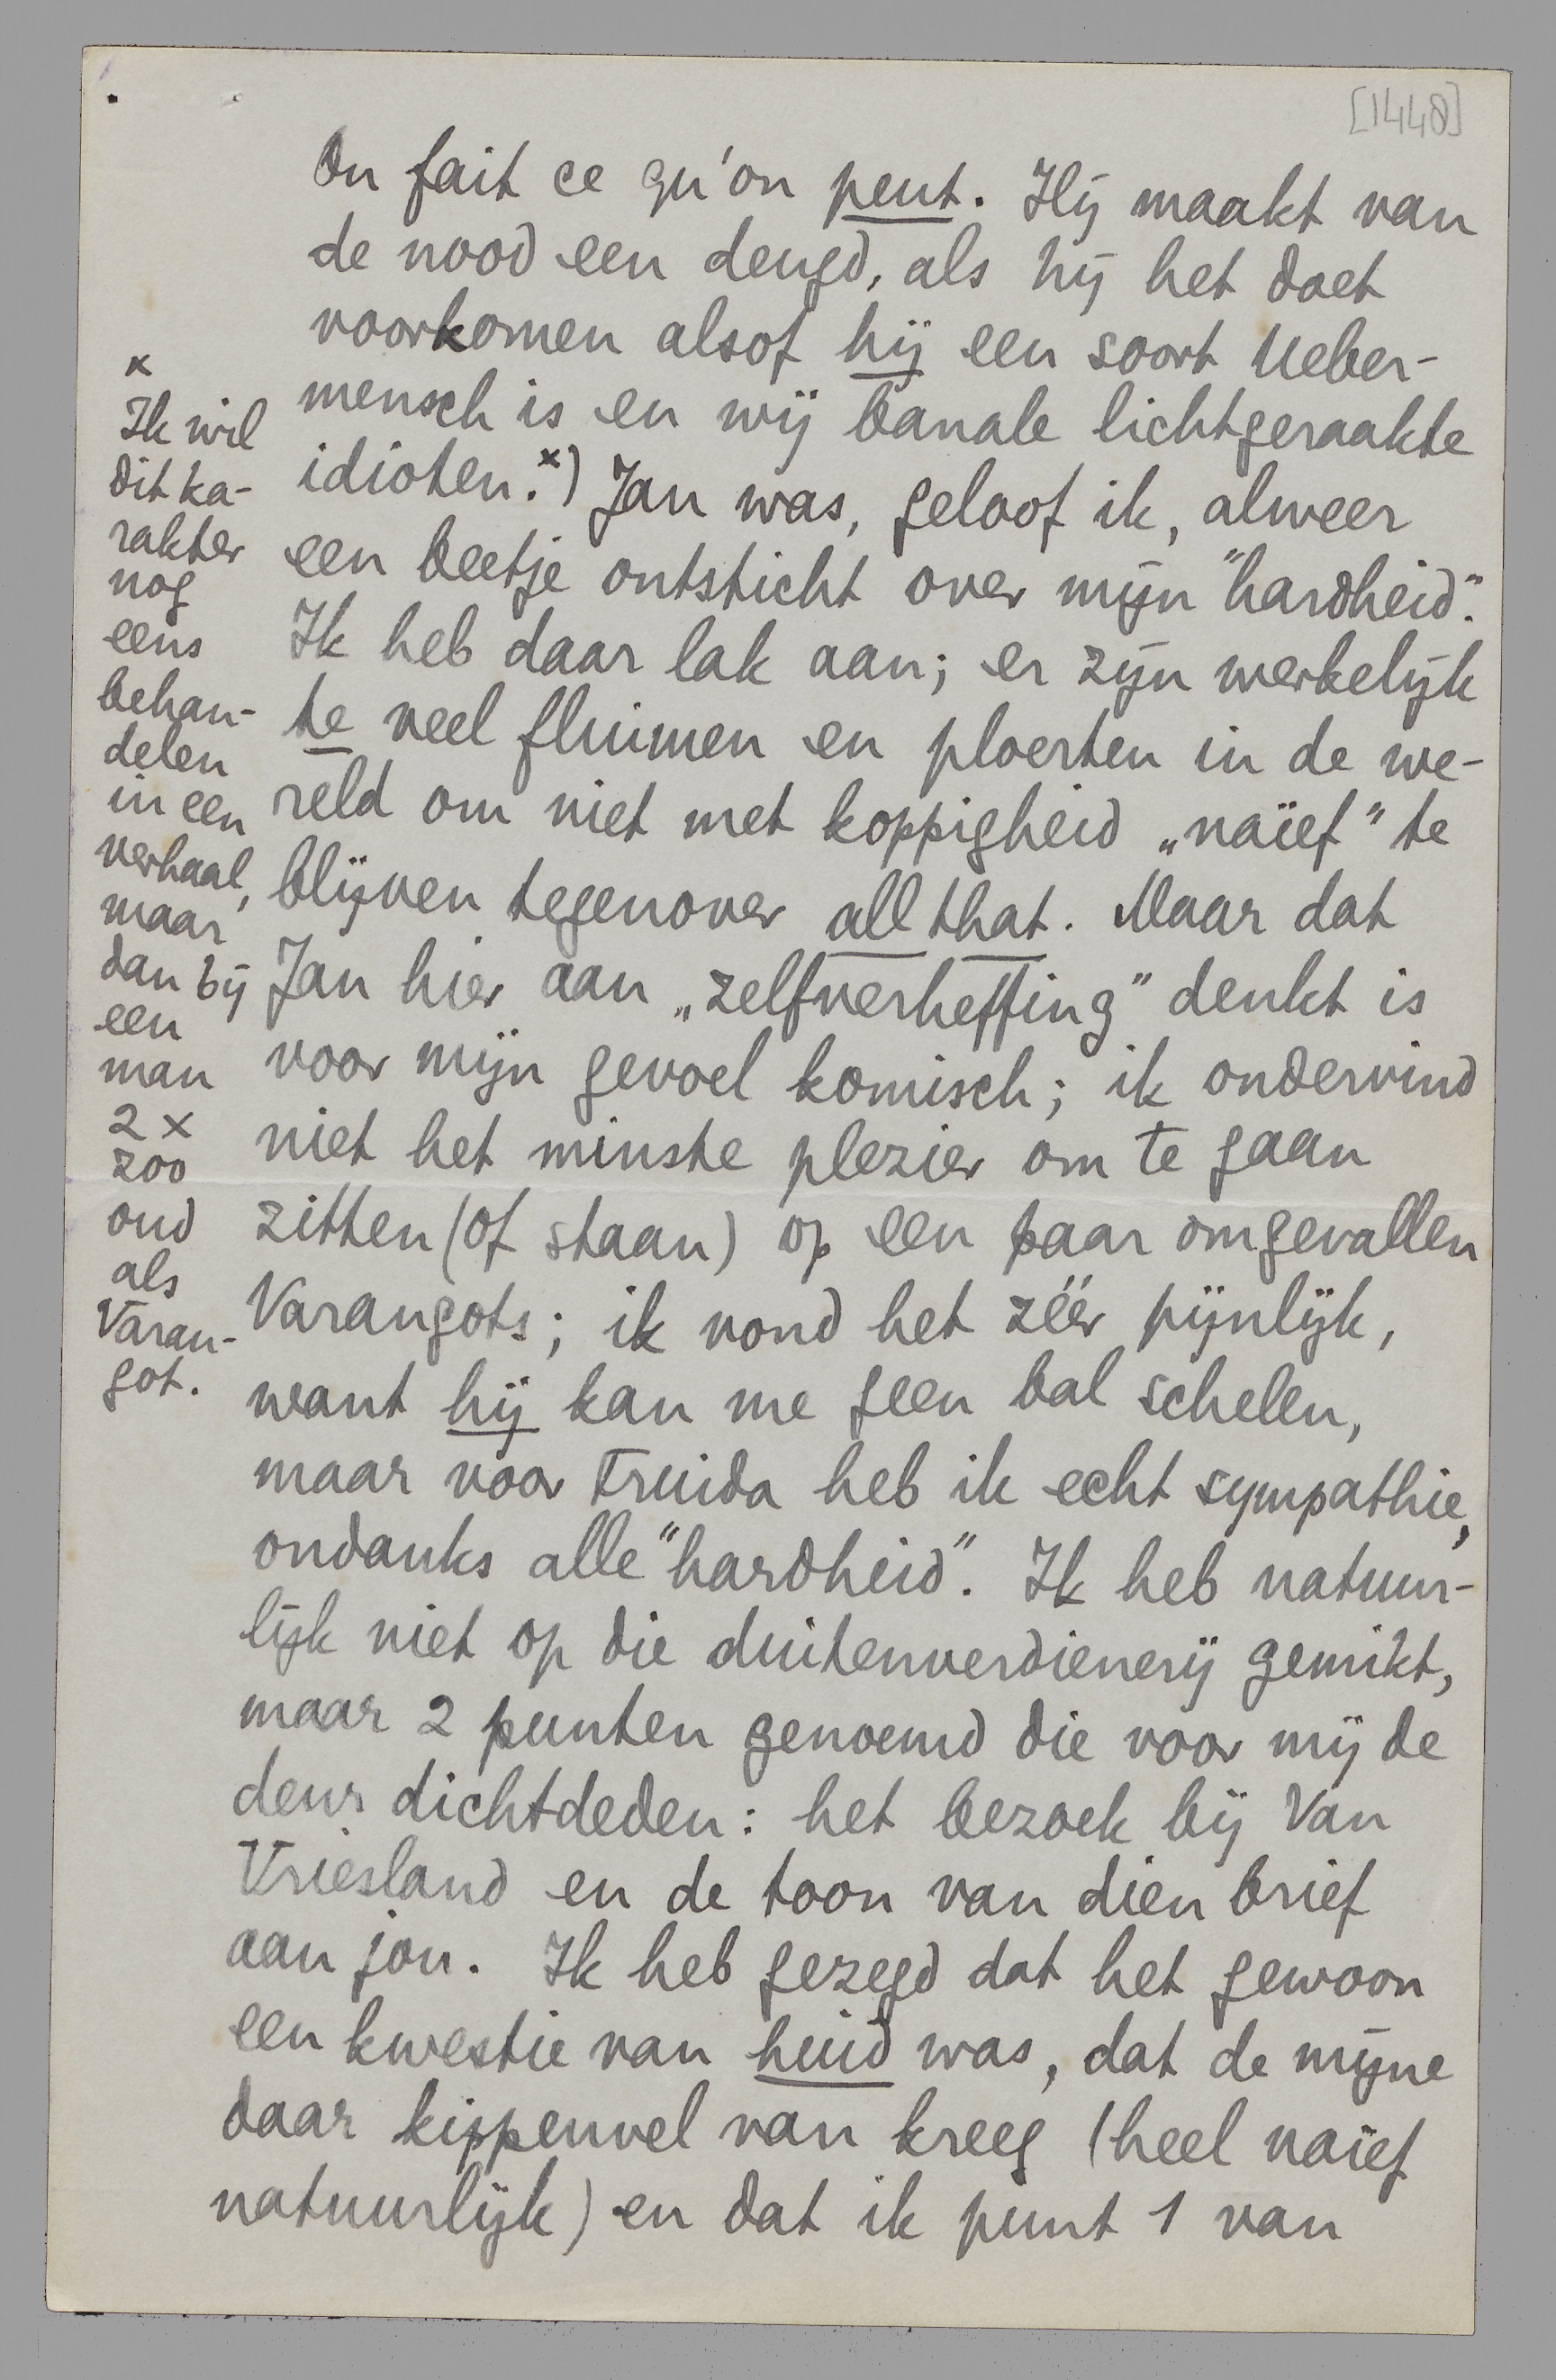 [1448]
On fait ce qu'on peut. Hij maakt van
de nood een deugd, als hij het doet
voorkomen alsof hij een soort Ueber-
mensch is en wij banale lichtgeraakte
idioten.x) Jan was, geloof ik, alweer
een beetje ontsticht over mijn "hardheid".
Ik heb daar lak aan; er zijn werkelijk
te veel fluimen en ploerten in de we-
reld om niet met koppigheid „naïef" te
blijven tegenover all that. Maar dat
Jan hier aan „zelfverheffing" denkt is
voor mijn gevoel komisch; ik ondervind
niet het minste plezier om te gaan
zitten (of staan) op een paar omgevallen
Varangots; ik vond het zéér pijnlijk,
want hij kan me geen bal schelen,
maar voor Truida heb ik echt sympathie,
ondanks alle "hardheid". Ik heb natuur-
lijk niet op die duitenverdienerij gemikt,
maar 2 punten genoemd die voor mij de
deur dichtdeden: het bezoek bij Van
Vriesland en de toon van dien brief
aan jou. Ik heb gezegd dat het gewoon
een kwestie van huid was, dat de mijne
daar kippenvel van kreeg (heel naïef
natuurlijk) en dat ik punt 1 van
x
Ik wil
dit ka-
rakter
nog
eens
behan-
delen
in een
verhaal,
maar
dan bij
een
man
2 x
zoo
oud
als
Varan-
got.